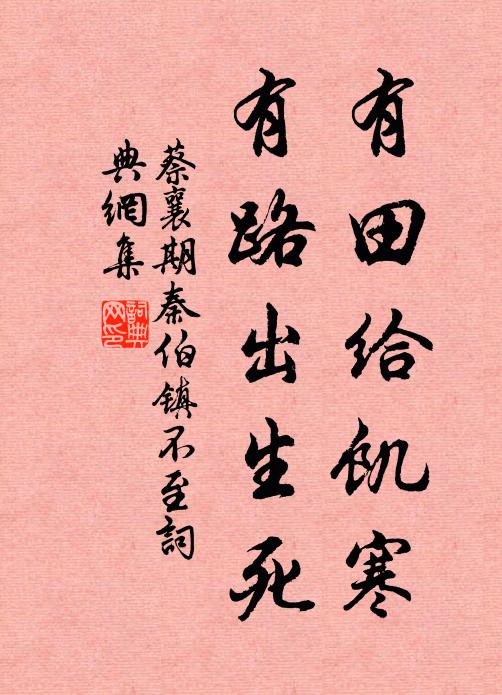 有田給飢寒
有路出生死
蔡襄期秦伯鎮不至詞
典網集
詞典
网印